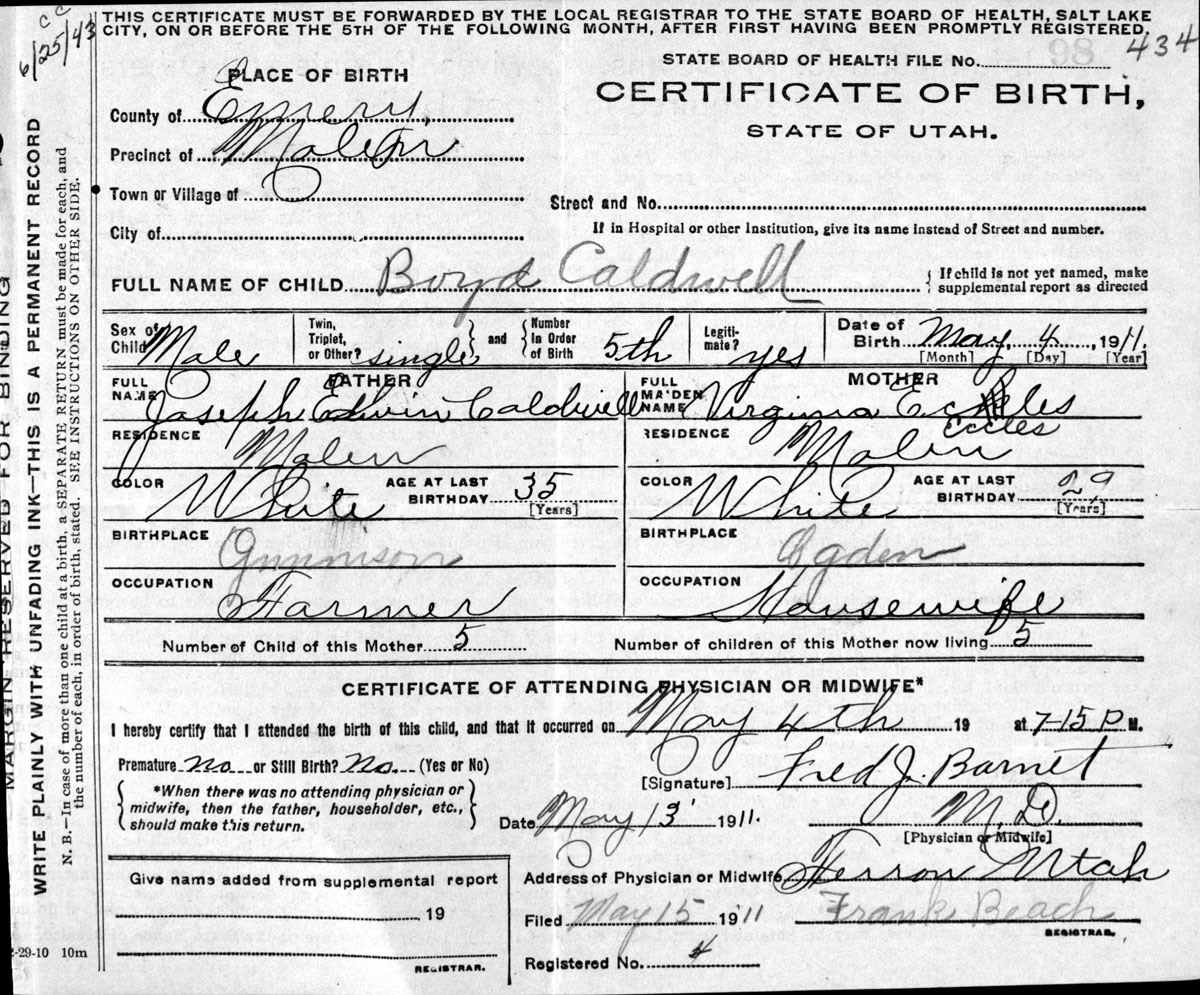 THIS CERTIFICATE MUST BE FORWARDED BY THE LOCAL REGISTRAR TO THE STATE BOARD OF HEALTH, SALT LAKE
CITY, ON OR BEFORE THE 5TH OF THE FOLLOWING MONTH, AFTER FIRST HAVING BEEN PROMPTLY REGISTERED.
CC
6/25/43
434
STATE BOARD OF HEALTH FILE No.
CERTIFICATE OF BIRTH,
STATE OF UTAH.
PLACE OF BIRTH
County of Emery
Precinct of Molen
Town or Village of
City of
Street and No.
If in Hospital or other Institution, give its name instead of Street and number.
FULL NAME OF CHILD Boyd Caldwell
{ If child is not yet named, make
supplemental report as directed
Sex of Child Male
Twin, Triplet, or Other? single } and { Number In Order of Birth 5th
Legiti- mate? yes
Date of Birth May 4 1911.
[Month] [Day] [Year]
FATHER
FULL NAME Joseph Edwin Caldwell
RESIDENCE Molen
COLOR White
AGE AT LAST BIRTHDAY 35
[Years]
BIRTHPLACE Gunnison
OCCUPATION Farmer
MOTHER
FULL MAIDEN NAME Virginia Eckles
Eccles
RESIDENCE Molen
COLOR White
AGE AT LAST BIRTHDAY 29
[Years]
BIRTHPLACE Ogden
OCCUPATION Housewife
Number of Child of this Mother 5
Number of children of this Mother now living 5
CERTIFICATE OF ATTENDING PHYSICIAN OR MIDWIFE*
I hereby certify that I attended the birth of this child, and that it occurred on May 4th 19 at 7-15 P M.
Premature No or Still Birth? No (Yes or No)
{ *When there was no attending physician or
midwife, then the father, householder, etc.,
should make this return. }
[Signature] Fred J. Barnet
Date May 13 1911.
M.D.
[Physician or Midwife]
Address of Physician or Midwife Ferron Utah
Filed May 15 1911 Frank Beach
REGISTRAR.
Registered No. 4
Give name added from supplemental report
19
REGISTRAR.
-29-10 10m
MARGIN RESERVED FOR BINDING
WRITE PLAINLY WITH UNFADING INK—THIS IS A PERMANENT RECORD
N. B.—In case of more than one child at a birth, a SEPARATE RETURN must be made for each, and
the number of each, in order of birth, stated. SEE INSTRUCTIONS ON OTHER SIDE.